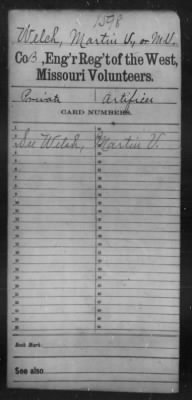 1598
Welsh, Martin V., or M.V.
Co B, Eng'r Reg't of the West,
Missouri Volunteers.
Private Artificer
CARD NUMBERS.
See Welsh, Martin V.
Book Mark:
See also